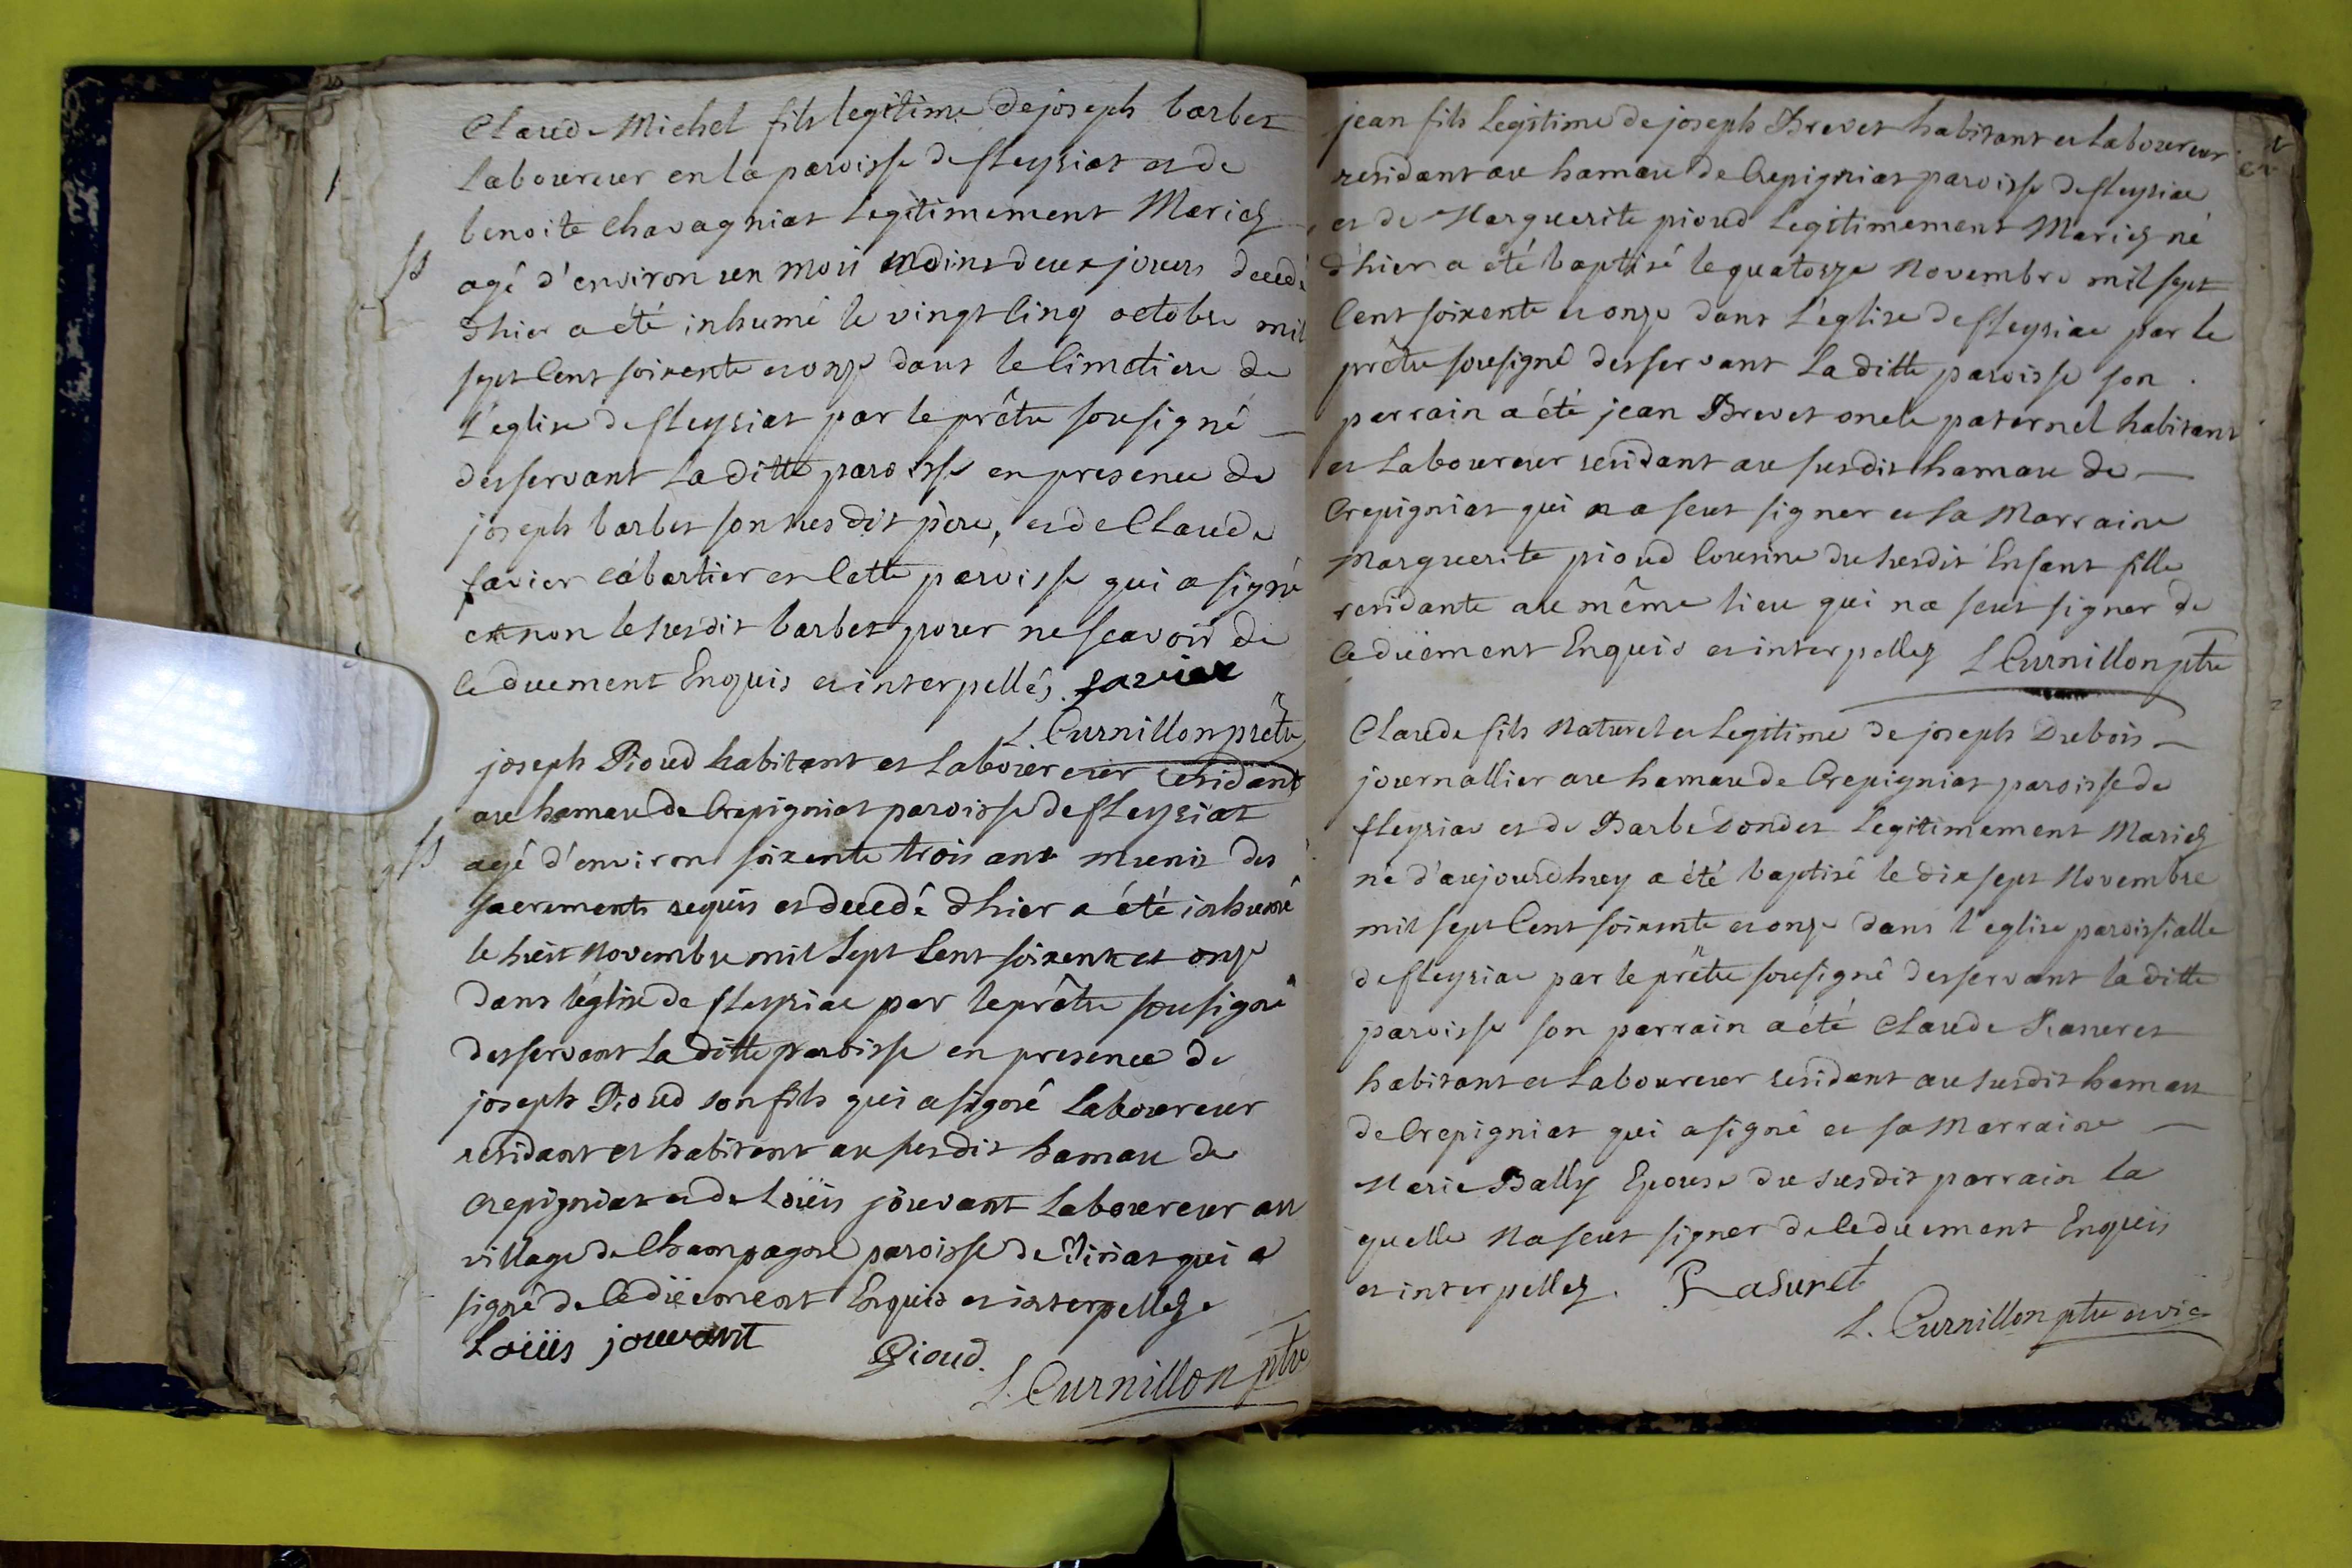 Claude Michel fils legitime de joseph barbet
Laboureur en la paroisse de fleyriat et de
benoite Chavagniat Legitimement Mariez
agé d'environ un mois moins deux jours decedé
d'hier a été inhumé le vingt cinq octobre mil
sept Cent soixente et onze dans le Cimetiere de
L'église de fleyriat par le prêtre sousigné
desservant La ditte paroisse en presence de
joseph barbet son susdit père, et de Claude
favier cabartier en Cette paroisse qui a signé
et non le susdit barbet pour ne scavoir de
Ce duement Enquis et interpellés. favier
L. Curnillon prêtre
joseph Pioud habitant et Laboureur residant
au hamau de Crepigniat paroisse de fleyriat
agé d'environ soixente trois ans munit des
sacrements requis et decedé d'hier a été inhumé
le huit Novembre mil Sept Cent soixente et onze
dans l'église de fleyriac par le prêtre sousigné
desservant La ditte paroisse en presence de
joseph Pioud son fils qui a signé Laboureur
residant et habitant au susdit hamau de
Crepigniat et de Loüis jouvant Laboureur au
village de Champagne paroisse de Viriat qui a
signé de Ce düement Enquis et interpellez
Loüis jouvant Pioud.
L. Curnillon ptre
jean fils Legitime de joseph Brevet habitant et Laboureur
residant au hamau de Crepigniat paroisse de fleyriac
et de Marguerite pioud Legitimement Mariez né
d'hier a été baptisé le quatorze Novembre mil sept
Cent soixente et onze dans L'église de fleyriac par le
prêtre sousigné desservant La ditte paroisse son
parrain a été jean Brevet oncle paternel habitant
et Laboureur residant au susdit hamau de
Crepigniat qui n a seut signer et sa Marraine
Marguerite pioud Cousine du susdit Enfant fille
residante au même lieu qui na seut signer de
Ce düement Enquis et interpellez L Curnillon ptre
Claude fils Naturel et Legitime de joseph Dubois
journallier au hamau de Crepigniat paroisse de
fleyriac et de Barbe Dondet Legitimement Mariez
né d'aujourdhuy a été baptisé le dix sept Novembre
mil sept Cent soixente et onze dans l'eglise paroissialle
de fleyriac par le prêtre sousigné desservant la ditte
paroisse son parrain a été Claude
habitant et Laboureur residant au susdit hamau
de Crepigniat qui a signé et sa Marraine
Marie Bally Epouse du susdit parrain la
quelle Na seut signer de Ce duement Enquis
et interpellez.
L. Curnillon ptre et vic